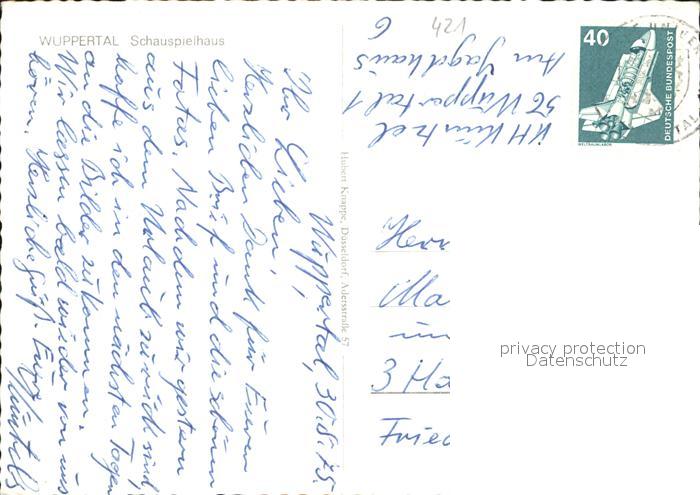 WUPPERTAL Schauspielhaus
421
KH Küntzel
56 Wuppertal 1
Am Jagdhaus
6
40
DEUTSCHE BUNDESPOST
WELTRAUMLABOR
Hubert Knappe, Düsseldorf, Adersstraße 57
Wuppertal, 30.8.75
Ihr Lieben,
Herzlichen Dank für Euren
lieben Brief und die schönen
Fotos. Nachdem wir gestern
aus dem Urlaub zurück sind,
hoffe ich in den nächsten Tagen
an die Bilder zu kommen.
Wir lassen bald wieder von uns
hören. Herzliche Grüße Eure
Küntzels
Herr
Ma
un
3 Ha
Fried
privacy protection
Datenschutz